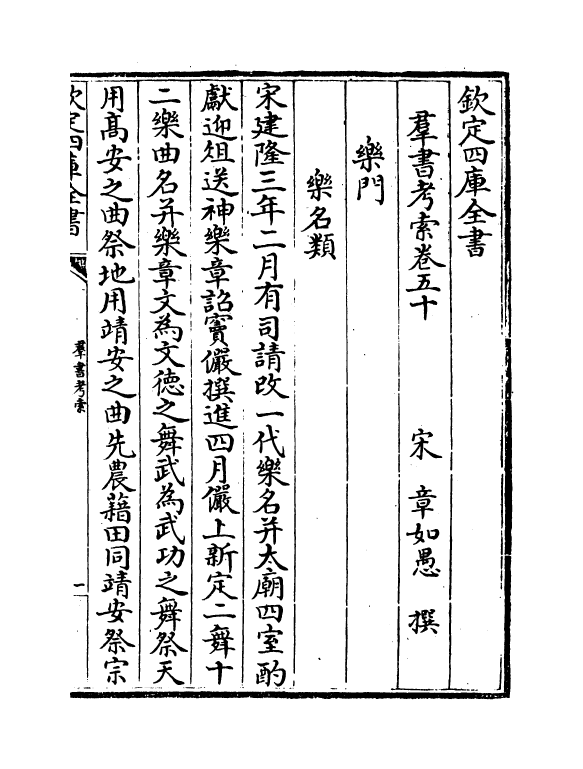 欽定四庫全書
羣書考索卷五十
宋 章如愚 撰
樂門
樂名類
宋建隆三年二月有司請改一代樂名并太廟四室酌
獻迎俎送神樂章詔竇儼撰進四月儼上新定二舞十
二樂曲名并樂章文為文德之舞武為武功之舞祭天
用高安之曲祭地用靖安之曲先農藉田同靖安祭宗
欽定四庫全書
羣書考索
一